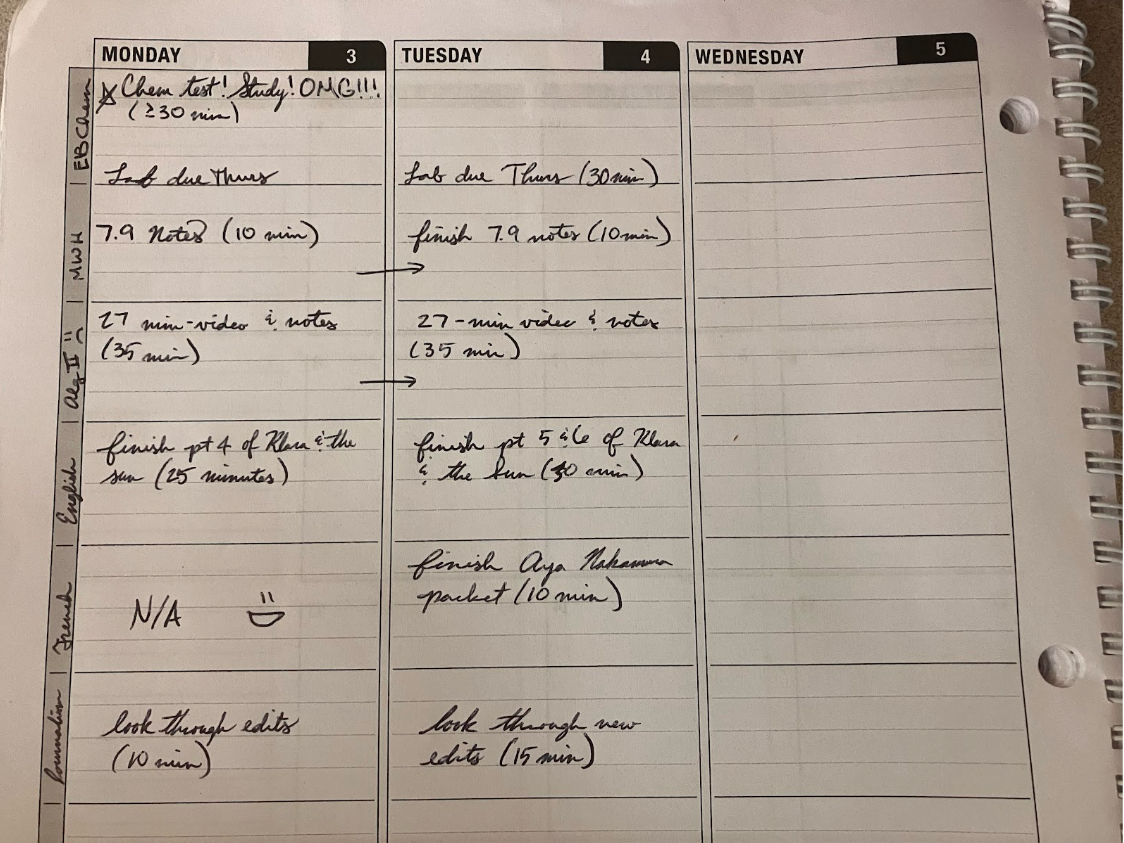 MONDAY 3
TUESDAY 4
WEDNESDAY 5
EB Chem
☆ Chem test! Study! OMG!!!
(≥30 min)
Lab due Thurs
Lab due Thurs (30 min)
MWH
7.9 Notes (10 min)
→
finish 7.9 notes (10 min)
Alg II
27 min-video & notes
(35 min)
→
27-min video & notes
(35 min)
English
finish pt 4 of Klara & the
sun (25 minutes)
finish pt 5 & 6 of Klara
& the Sun (30 min)
French
N/A
finish Aya Nakamura
packet (10 min)
Journalism
look through edits
(10 min)
look through new
edits (15 min)